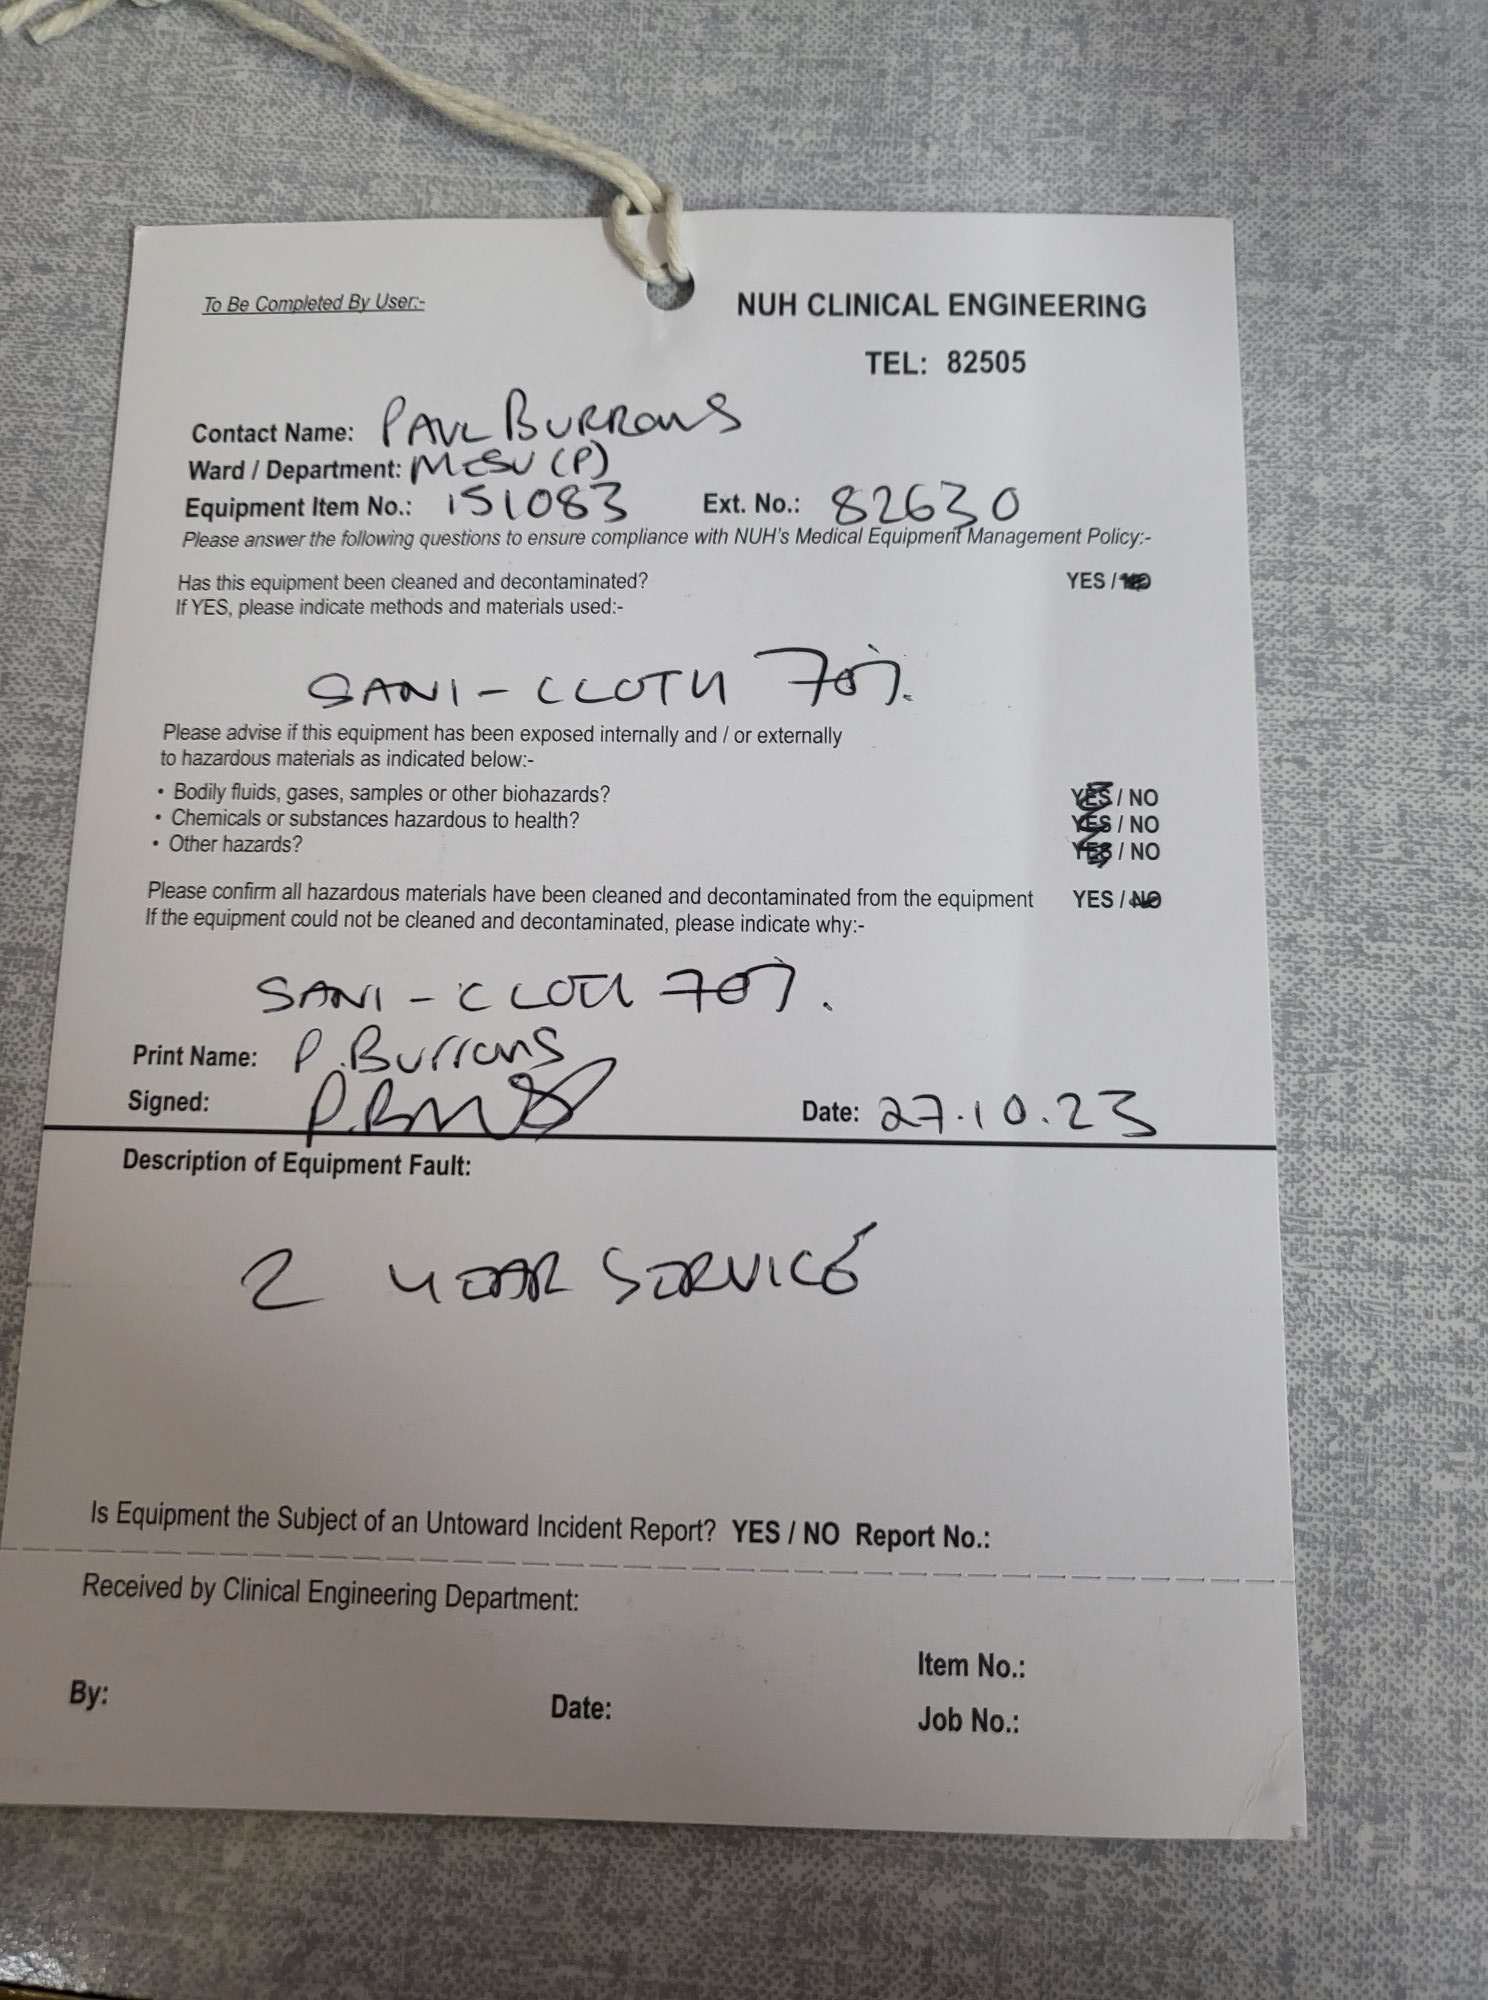 To Be Completed By User:-
NUH CLINICAL ENGINEERING
TEL: 82505
Contact Name: PAUL BURROWS
Ward / Department: MESU (P)
Equipment Item No.: 151083 Ext. No.: 82630
Please answer the following questions to ensure compliance with NUH's Medical Equipment Management Policy:-
Has this equipment been cleaned and decontaminated? YES / NO
If YES, please indicate methods and materials used:-
SANI-CLOTH 70%.
Please advise if this equipment has been exposed internally and / or externally
to hazardous materials as indicated below:-
• Bodily fluids, gases, samples or other biohazards? YES / NO
• Chemicals or substances hazardous to health? YES / NO
• Other hazards? YES / NO
Please confirm all hazardous materials have been cleaned and decontaminated from the equipment YES / NO
If the equipment could not be cleaned and decontaminated, please indicate why:-
SANI-CLOTH 70%.
Print Name: P.Burrows
Signed:
Date: 27.10.23
Description of Equipment Fault:
2 YEAR SERVICE
Is Equipment the Subject of an Untoward Incident Report? YES / NO Report No.:
Received by Clinical Engineering Department:
Item No.:
By: Date:
Job No.: